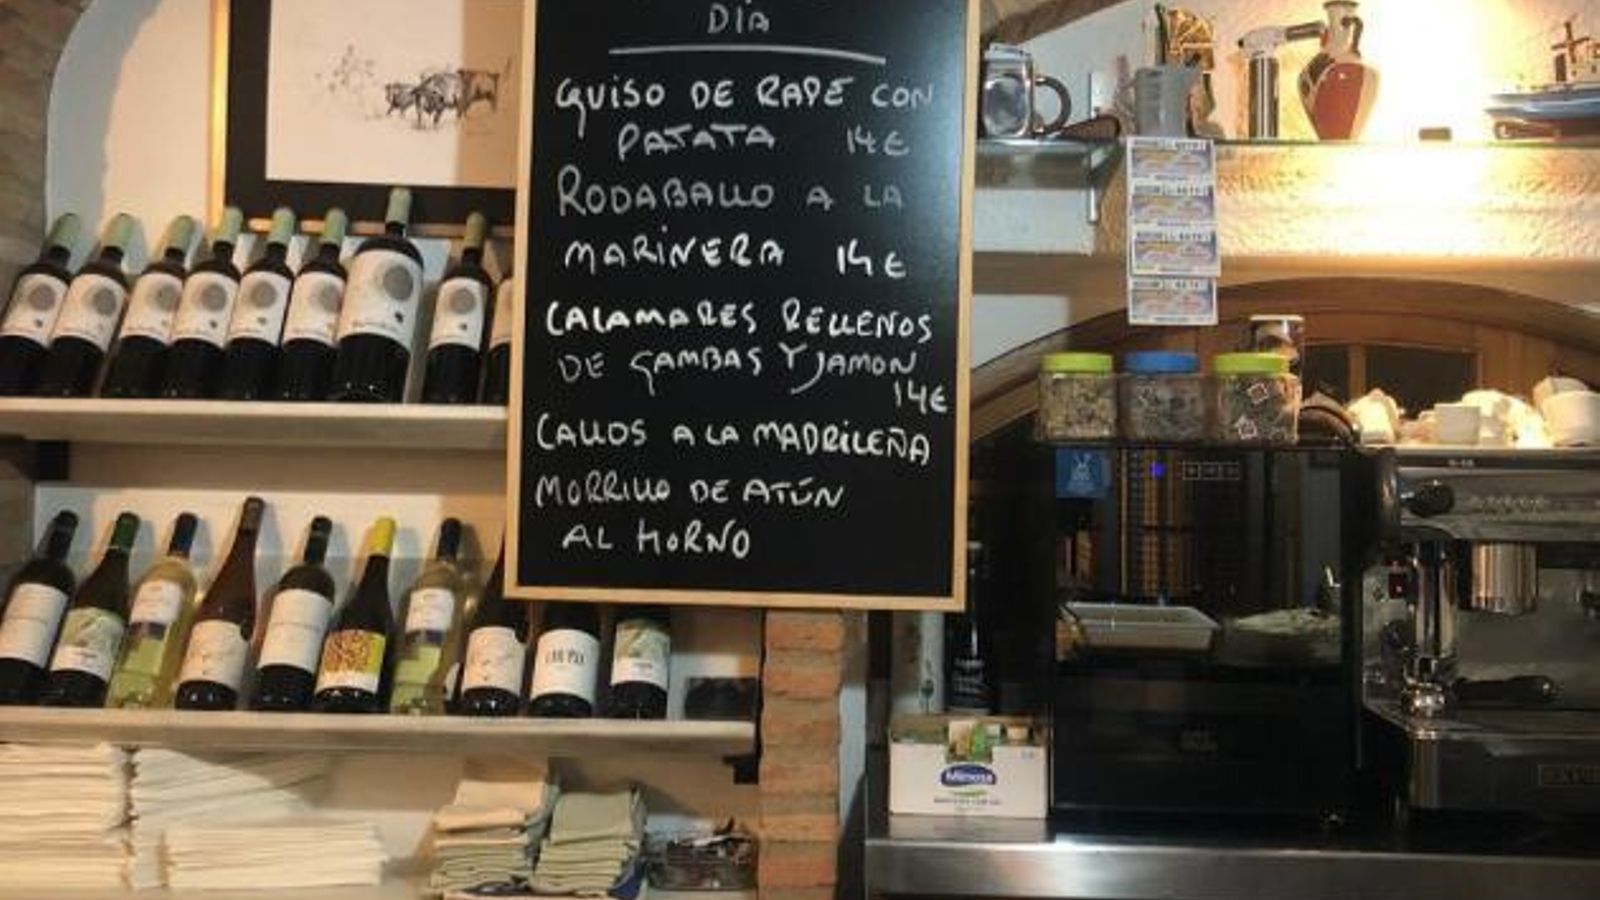 DÍA
GUISO DE RAPE CON
PATATA 14€
RODABALLO A LA
MARINERA 14€
CALAMARES RELLENOS
DE GAMBAS Y JAMON
14€
CALLOS A LA MADRILEÑA
MORRILLO DE ATÚN
AL HORNO
Mimosa